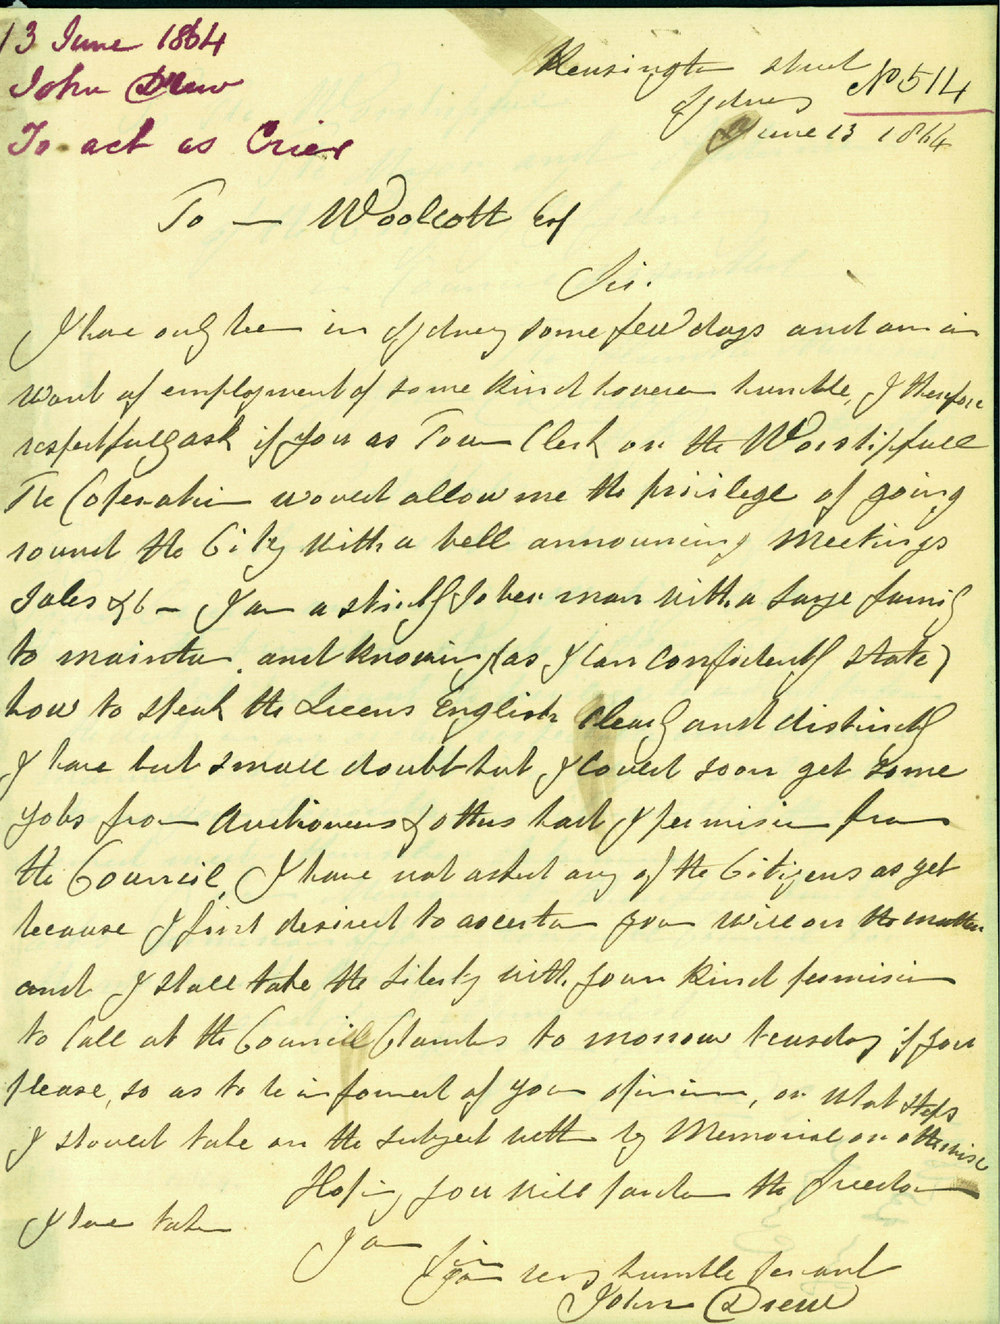 13 June 1864
John Drew
To act as Crier
Kensington street
Sydney
No 514
June 13 1864
To — Woolcott Esq
Sir.
I have only been in Sydney some few days and am in
want of employment of some kind however humble, I therefore
respectfully ask if you as Town Clerk or the Worshipfull
The Coporation would allow me the privilege of going
round the City with a bell announcing Meetings
Sales &c – I am a strictly Sober man with a large family
to maintain. and knowing (as I can confidently state)
how to speak the Queens English clearly and distinctly
I have but small doubt but I could soon get some
jobs from Auctioneers & others had I permission from
the Council, I have not asked any of the Citizens as yet
because I first desired to ascertain your will on the matter
and I shall take the liberty with your kind permission
to call at the Council Chambers to morrow tuesday if you
please, so as to be informed of your opinion, or what steps
I should take on the subject wether by Memorial or otherwise
Hoping you will pardon the freedom
I have taken
I am
Sir
your very humble servant
John Drew